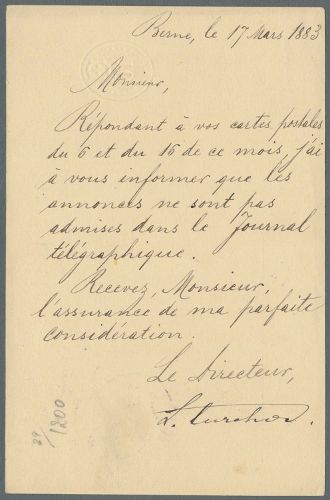 Berne, le 17 Mars 1883
Monsieur,
Répondant à vos cartes postales
du 6 et du 16 de ce mois, j'ai
à vous informer que les
annonces ne sont pas
admises dans le Journal
télégraphique.
Recevez, Monsieur,
l'assurance de ma parfaite
considération.
Le Directeur,
39/1200